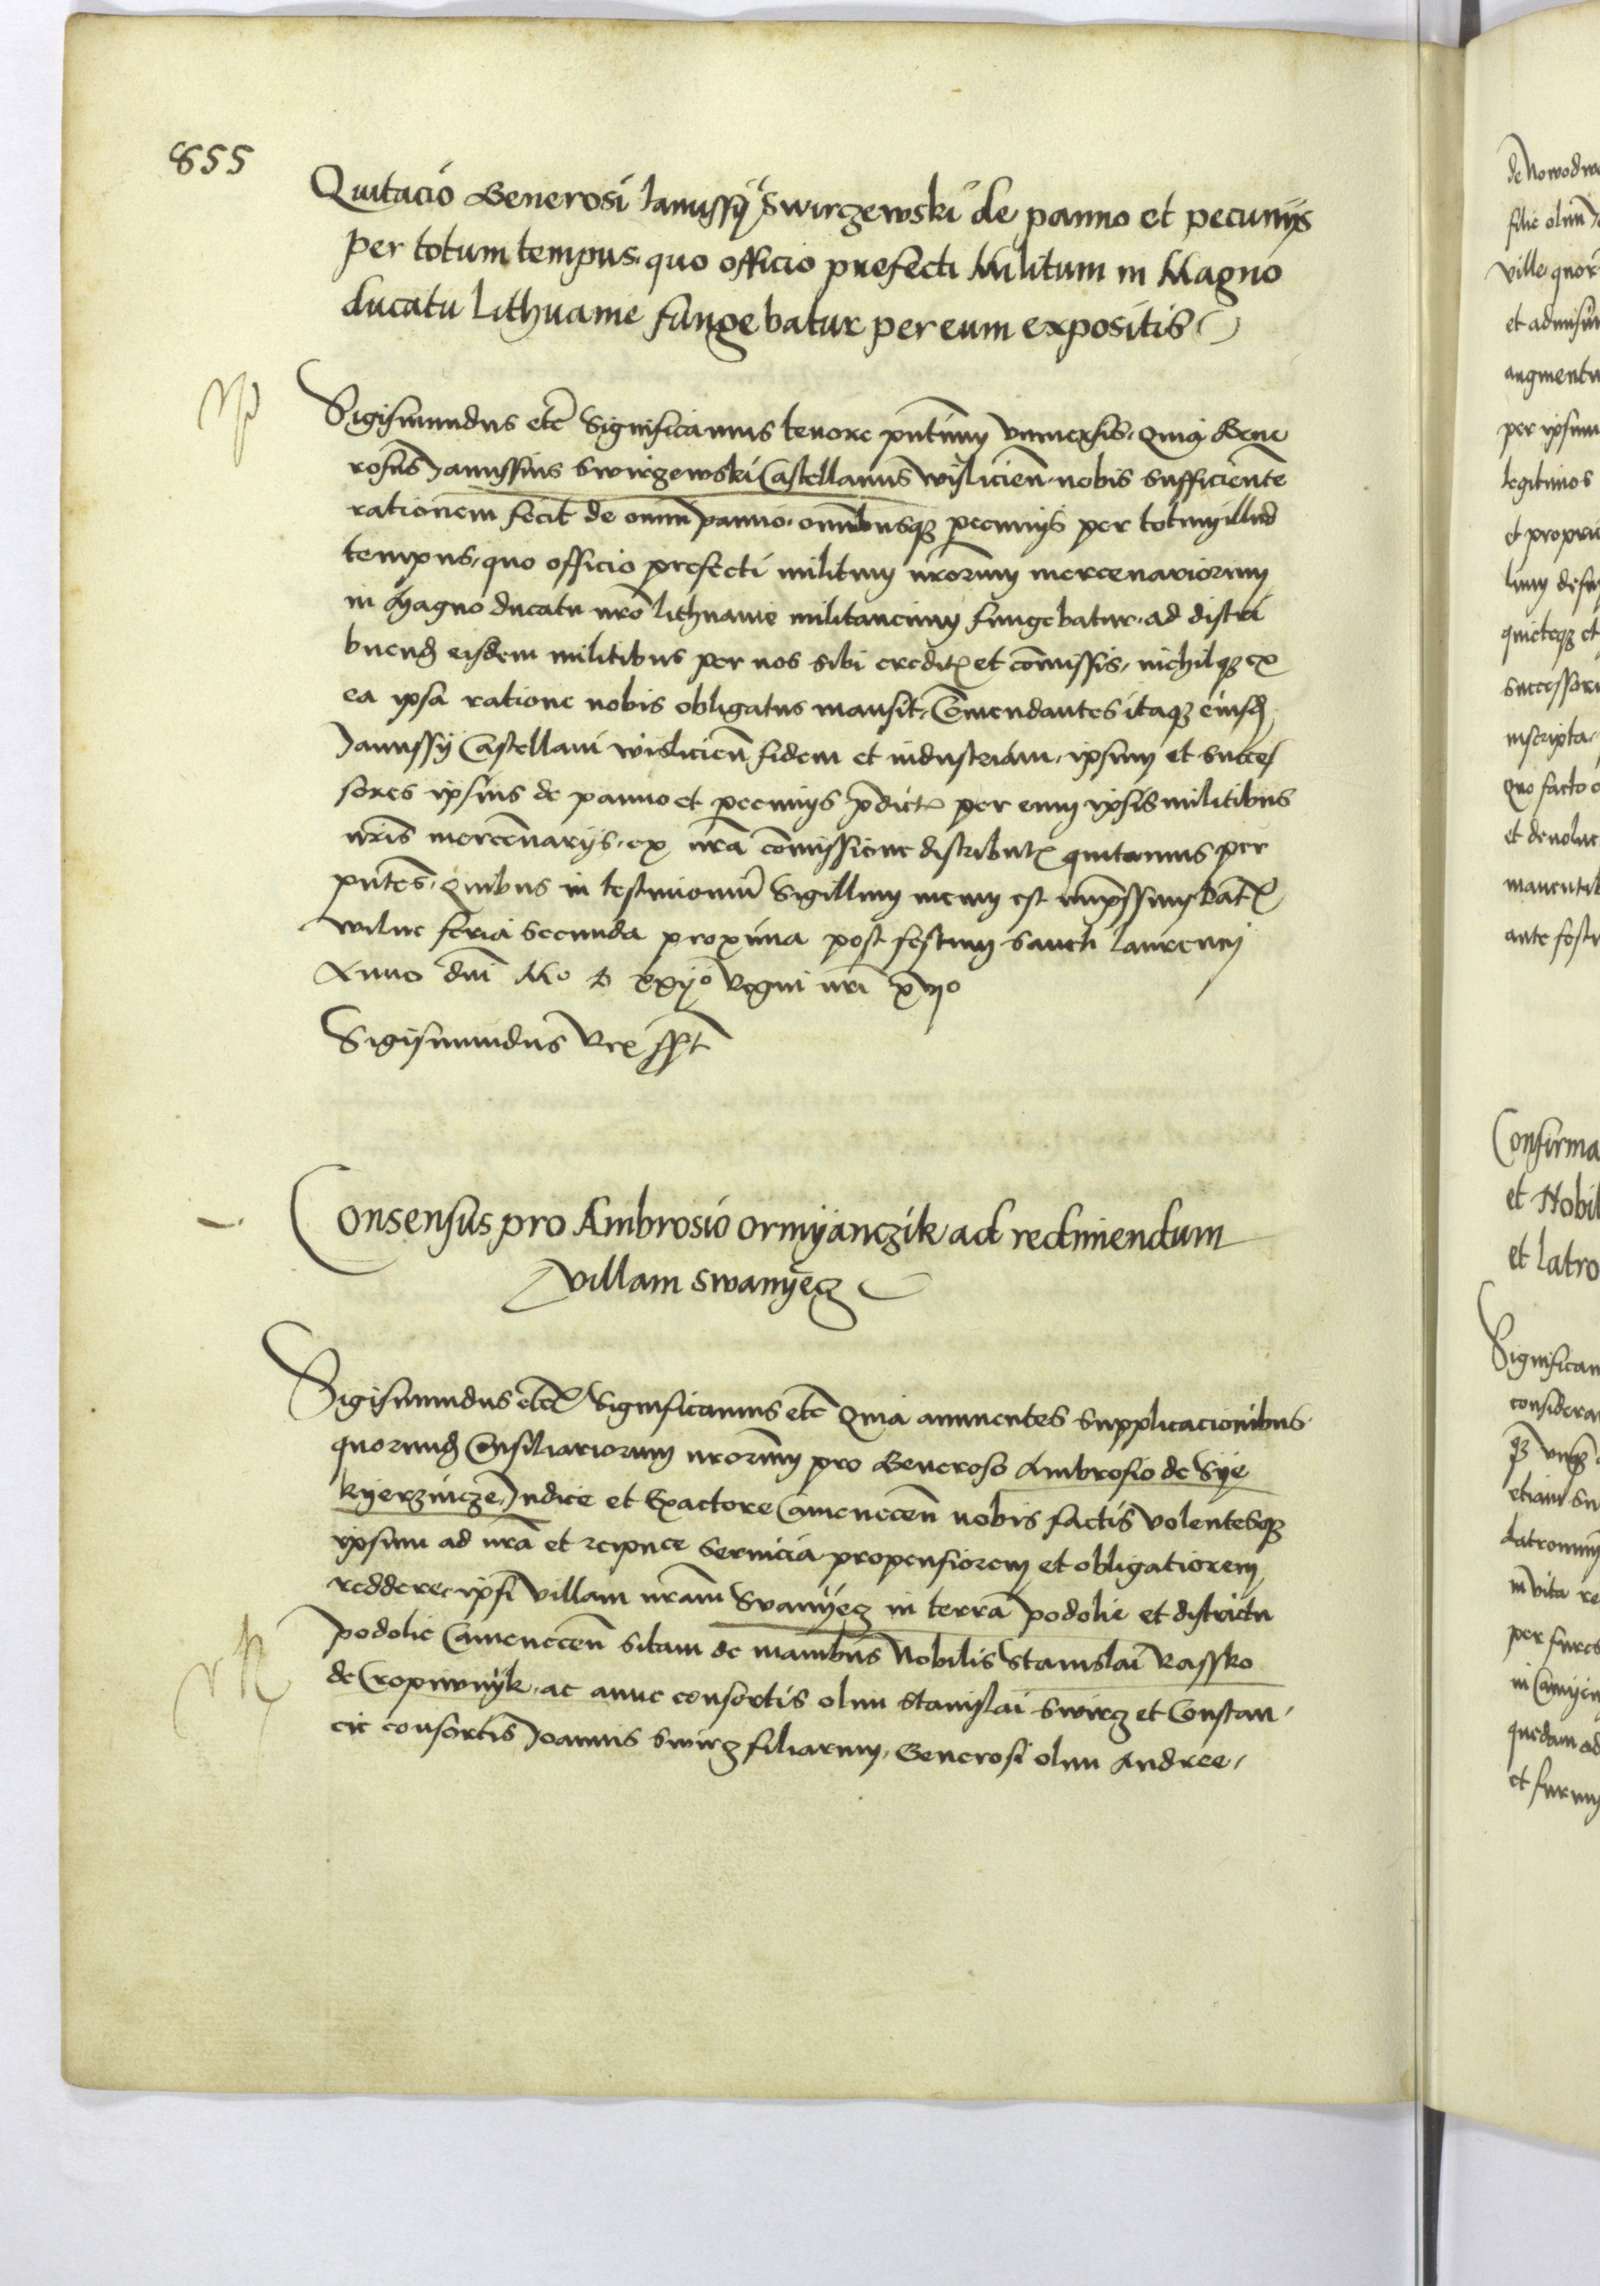 855
Quitacio Generosi Janussÿ Swirczewski de panno et pecunijs
per totum tempus quo officio prefecti Militum in Magno
ducatu Lithuanie fungebatur per eum expositis
Sigismundus etc̄ Significamus tenore pn̄tium vniuersis, Quia Gene
rosus Janussius Swirczewski Castellanus wislicien̄ nobis sufficiente
rationem fecit de omni panno omnibusq₃ pecunijs per totum illud
tempus, quo officio prefecti militum nr̄orum mercenariorum
in Magno ducatu nr̄o lithuanie militancium fungebatur, ad distri
buend eisdem militibus per nos sibi credit et com̄issis, nichilq₃ ex
ea ipsa ratione nobis obligatus mansit, Com̄endantes itaq₃ eiusd
Janussÿ Castellani wislicien̄ fidem et industriam, ipsum et succes
sores ipsius de panno et pecunijs p̄dict per eum ipsis militibus
nr̄is mercen̄arijs, ex nr̄a com̄issione distribut quitamus per
pn̄tes, Quibus in testimoniū Sigillum meum est imp̄ssum Dat
wilne feria secunda proxima post festum sancti laurencij
Anno dn̄i Mo D xxijo Regni nr̄i xvjo
Sigismundus Rex sspt
Consensus pro Ambrosio ormÿanczik ad redimendum
villam swanÿecz
Sigismundus etc̄ Significamus etc̄ Quia annuentes supplicacionibus
quorund Consiliariorum nr̄orum pro Generoso Ambrosio de Sÿe
kÿerzincze, Judice et Exactore Camenecen̄ nobis factis volentesq₃
ipsum ad nr̄a et reipuce seruicia propensiorem et obligatiorem
reddere, ipsi villam nr̄am Svanÿecz in terra podolie et districtu
podolie Camenecen̄ sitam de manibus Nobilis Stanislai Rassko
de Cropiwnÿk, ac anne consortis olim Stanislai Swircz et Constan
cie consortis Joannis Swircz filiarum, Generosi olim Andree,
de Nowodwo
filie olim
ville, quor
et admisu
augmentu
per ipsum
legitimos
et propri
quieteq₃ et
successori
inscripta
Quo facto
et deuolue
manentib
ante festu
Confirma
et Nobil
et latro
Significam
considera
etiam su
latronum
in vita re
per fures
quedam ad
et furum